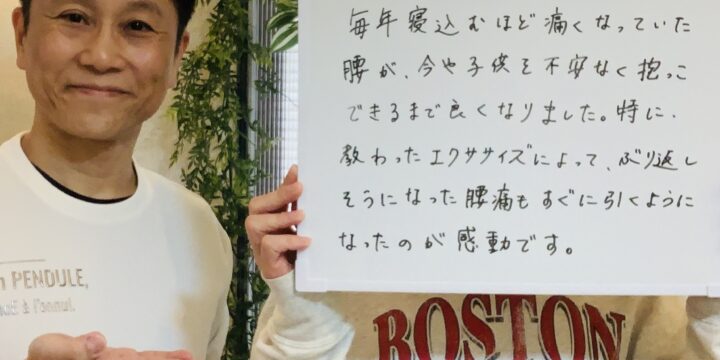 毎年寝込むほど痛くなっていた
腰が、今や子供を不安なく抱っこ
できるまで良くなりました。特に、
教わったエクササイズによって、ぶり返し
そうになった腰痛もすぐに引くように
なったのが感動です。
PENDULE,
à l'ennui.
BOSTON